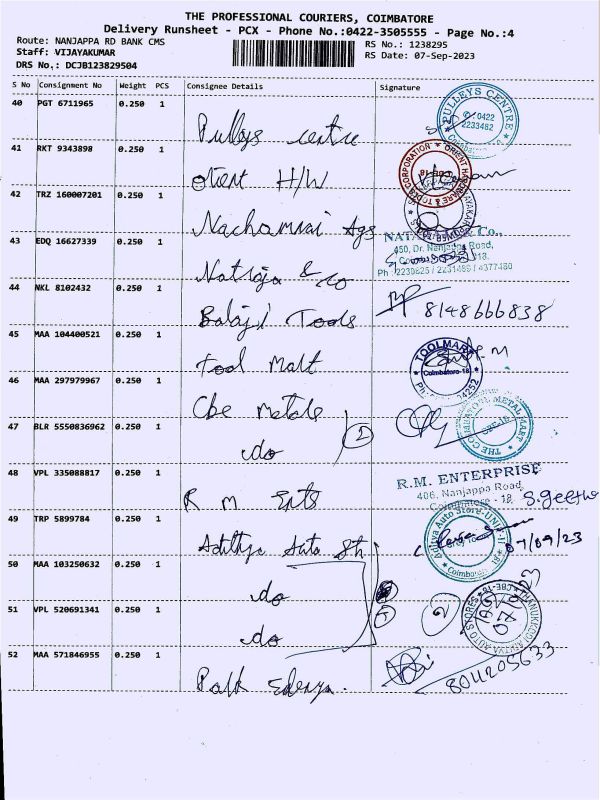 THE PROFESSIONAL COURIERS, COIMBATORE
Delivery Runsheet - PCX - Phone No.:0422-3505555 - Page No.:4
Route: NANJAPPA RD BANK CMS
RS No.: 1238295
Staff: VIJAYAKUMAR
RS Date: 07-Sep-2023
DRS No.: DCJB123829504
S No Consignment No Weight PCS Consignee Details Signature
40 PGT 6711965 0.250 1
Pulleys centre
PULLEYS CENTRE
0422
2233482
41 RKT 9343898 0.250 1
H/W
42 TRZ 160007201 0.250 1
Ags
43 EDQ 16627339 0.250 1
Co.,
450, Dr. Nanjappa Road,
44 NKL 8102432 0.250 1
Balaji Tools
8148666838
45 MAA 104400521 0.250 1
Tool Mart
TOOLMART
Coimbatore-18
46 MAA 297979967 0.250 1
Cbe Metals
THE COIMBATORE METAL MART
47 BLR 5550836962 0.250 1
do
2
48 VPL 335088817 0.250 1
R M Ents
R.M. ENTERPRISE
406, Nanjappa Road,
Coimbatore - 18.
S.geetha
49 TRP 5899784 0.250 1
Adithya Auto
Aditya Auto Store-UNIT-II
07/09/23
50 MAA 103250632 0.250 1
do
51 VPL 520691341 0.250 1
do
2
52 MAA 571846955 0.250 1